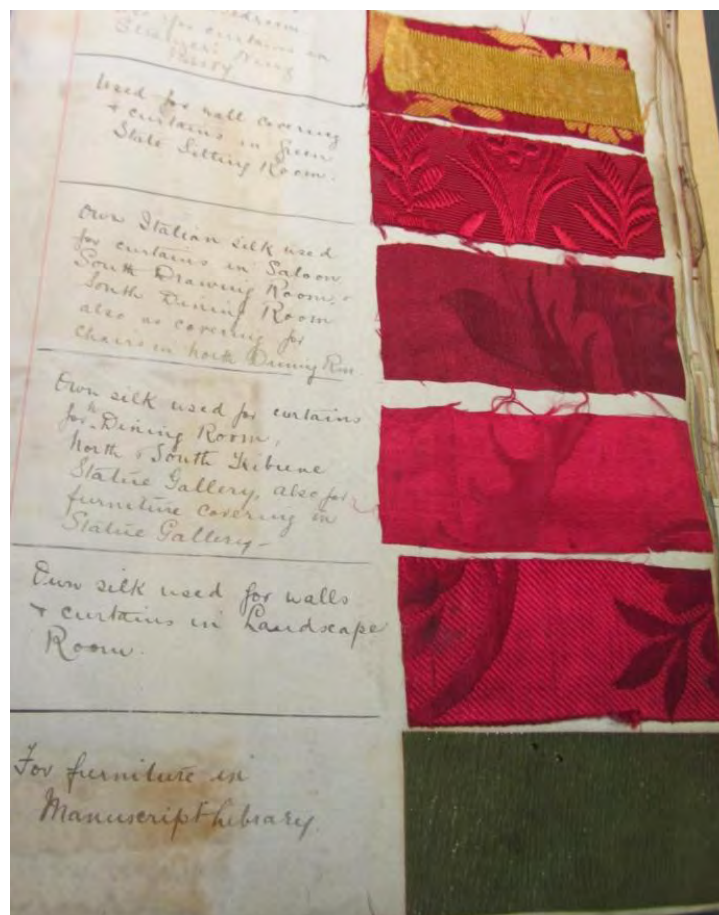 also for curtains in
Used for wall covering
+ curtains in Green
State Sitting Room.
Own Italian silk used
for curtains in Saloon,
South Drawing Room, +
South Dining Room
also as covering for
Chairs in North Dining Rm
Own silk used for curtains
for N Dining Room,
North + South Tribune
Statue Gallery, also for
furniture covering in
Statue Gallery -
Own silk used for walls
+ curtains in Landscape
Room.
For furniture in
Manuscript Library.